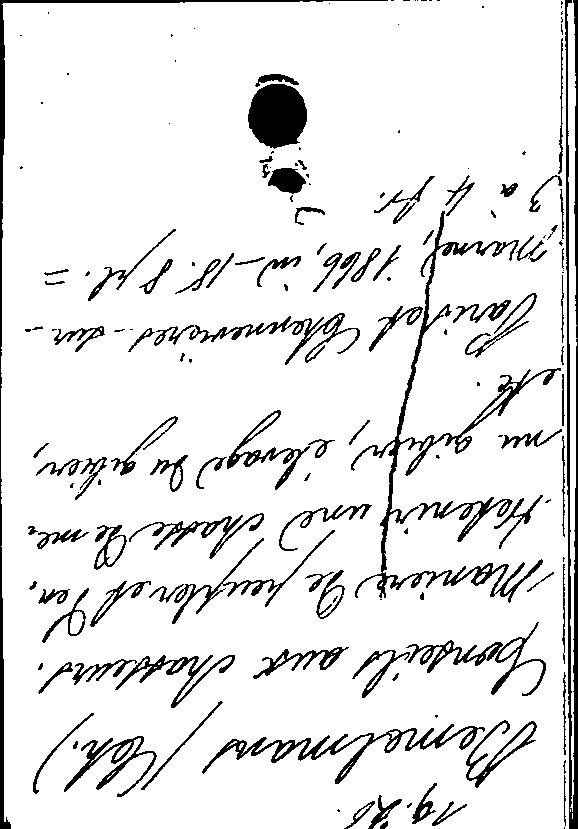 19.26.
Bemelmans (Ch.)
Conseils aux chasseurs.
Manière de peupler et d'en-
tretenir une chasse de me-
nu gibier, élevage du gibier,
etc.
Paris et Chennevières-sur-
Marne, 1866, in-18. 8 pl. =
3 à 4 fr.